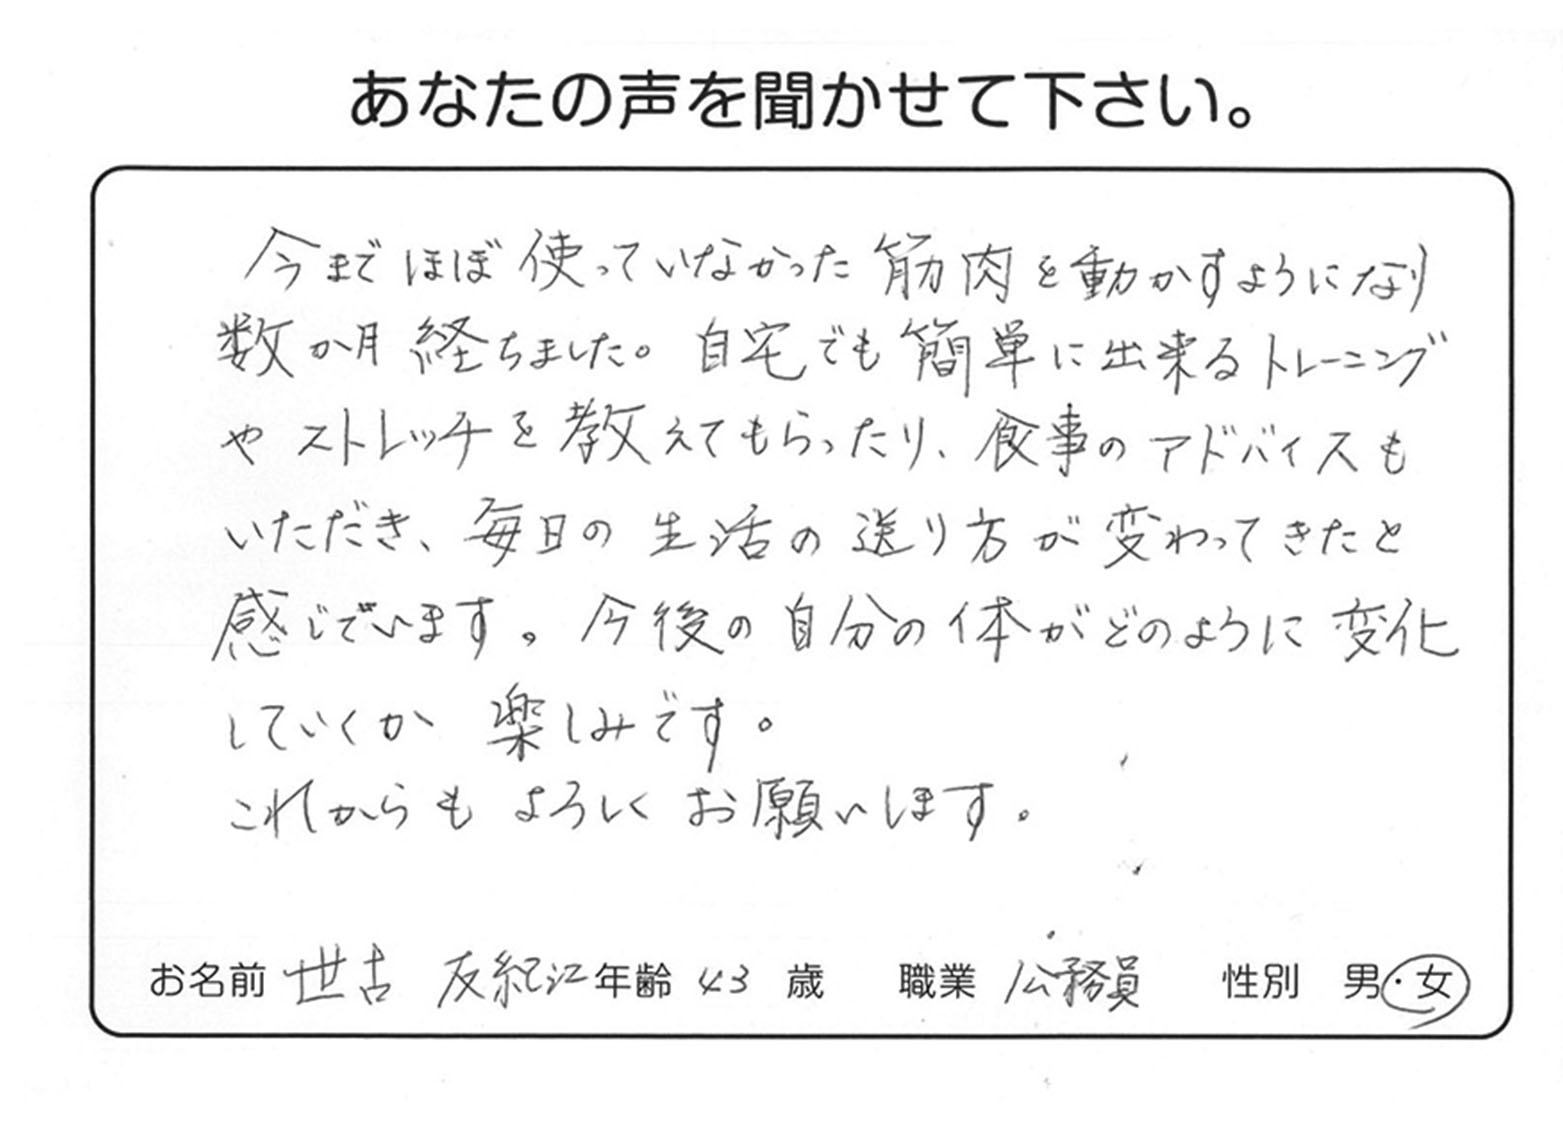 あなたの声を聞かせて下さい。
今まで ほぼ 使っていなかった 筋肉を動かすようになり
数か月 経ちました。自宅でも 簡単に出来るトレーニング
や ストレッチを 教えてもらったり、食事の アドバイスも
いただき、毎日の 生活の 送り方が 変わってきたと
感じています。今後の 自分の 体がどのように 変化
していくか 楽しみです。
これからも よろしく お願いします。
お名前 世古 友紀江 年齢 43 歳 職業 公務員 性別 男・女